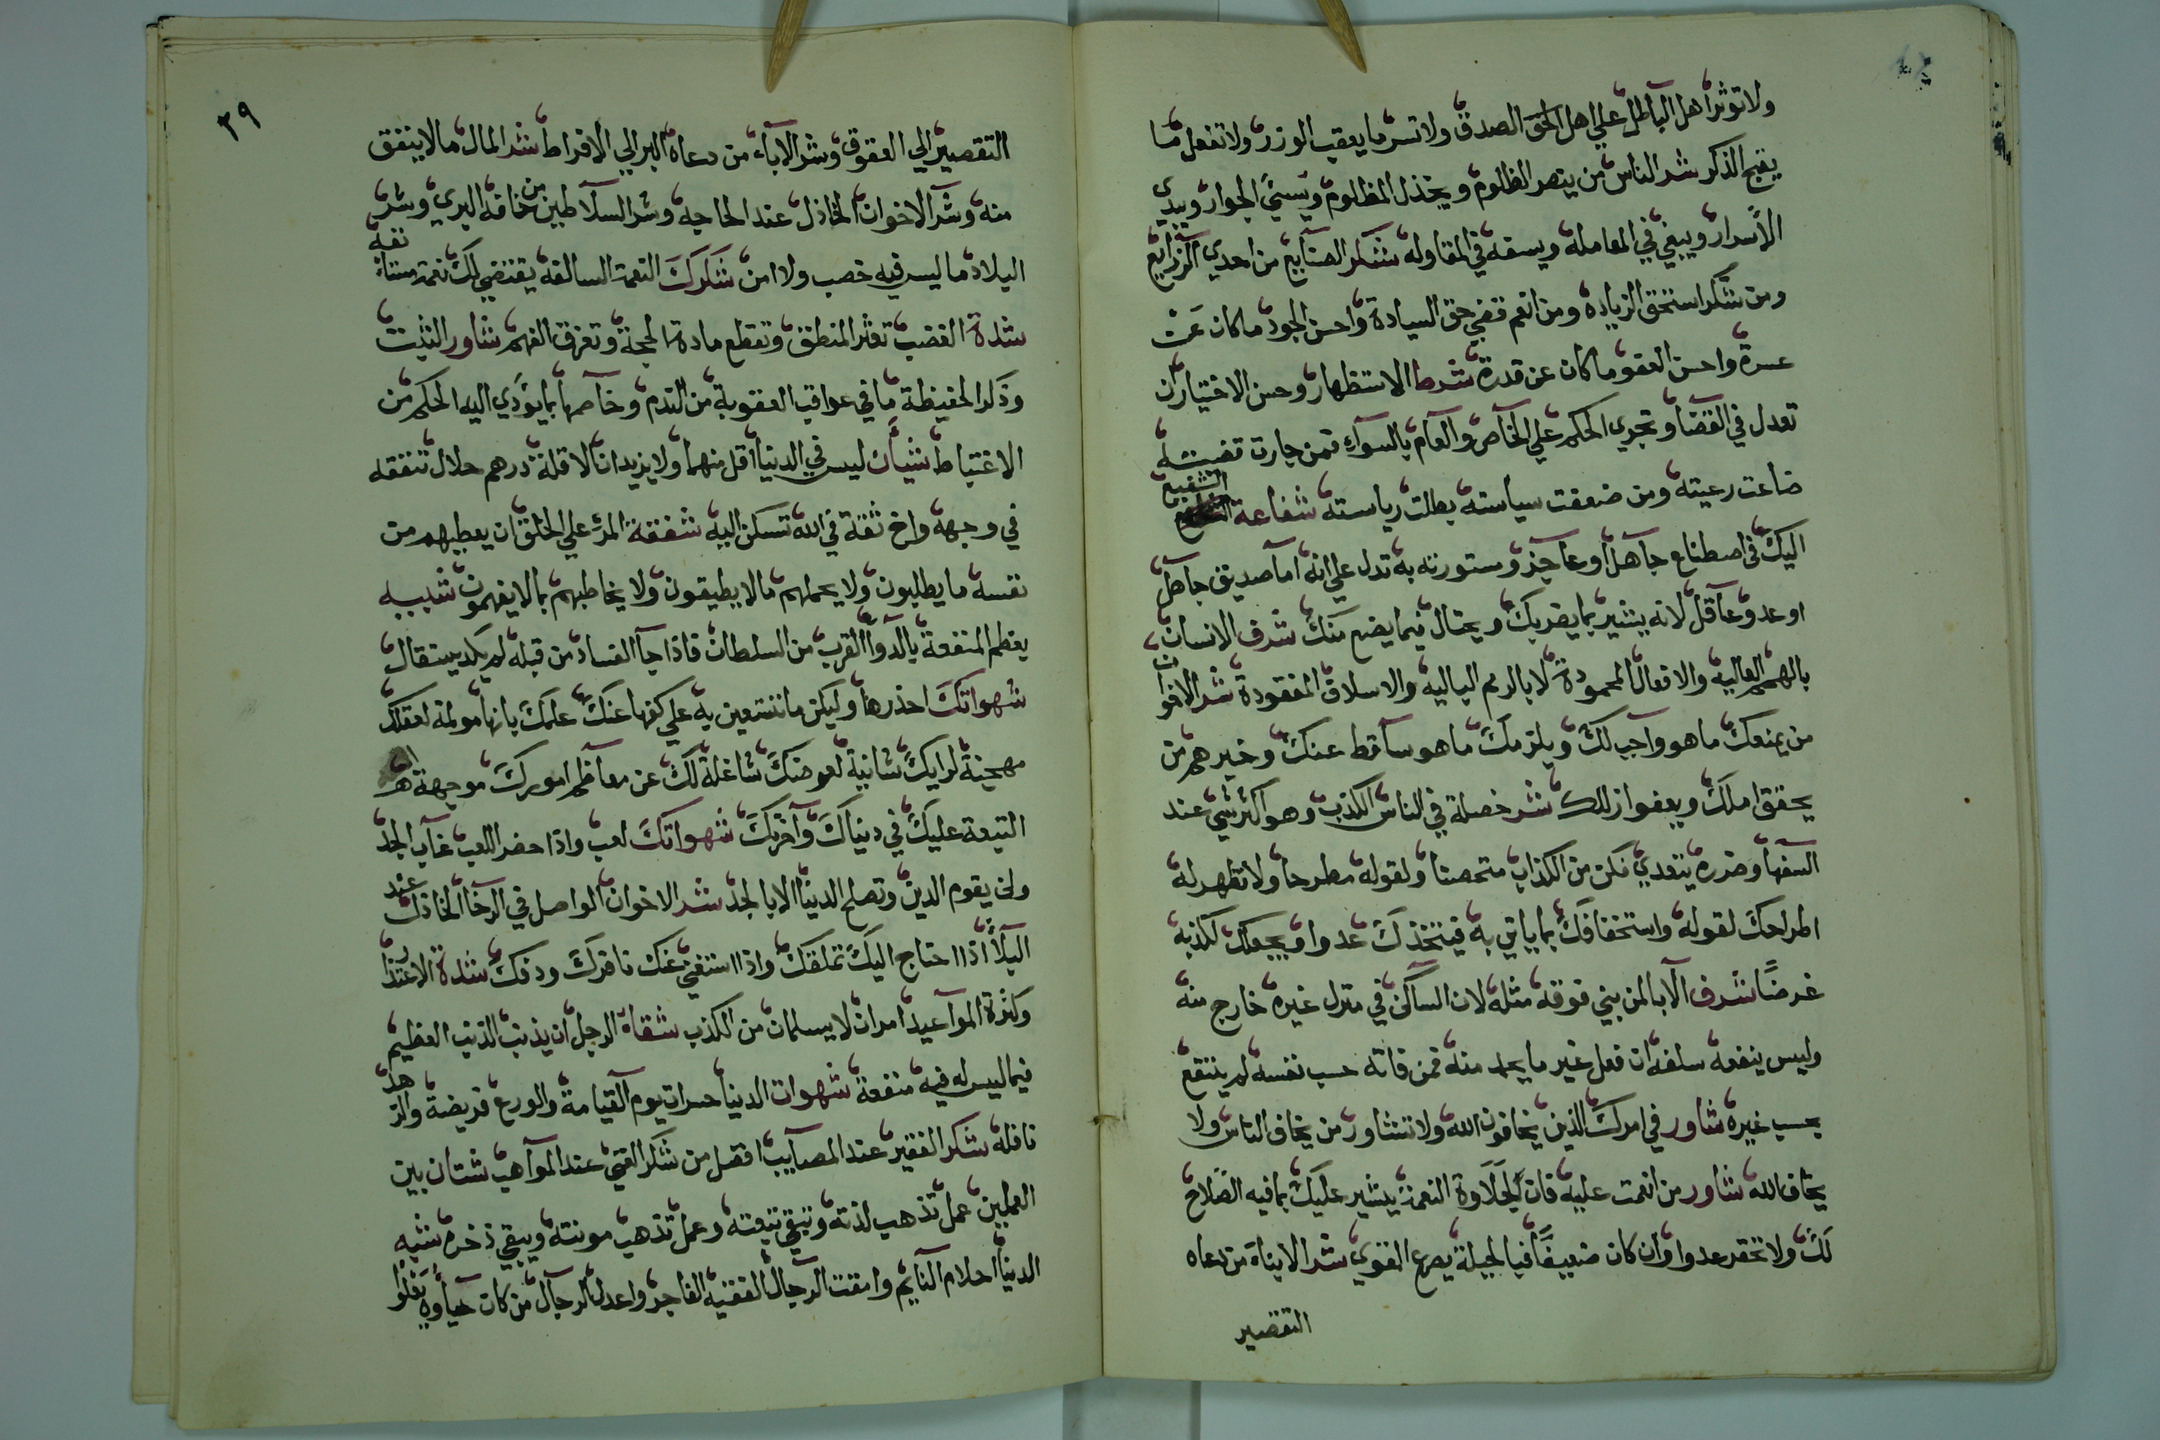 ولا توثر اهل الباطل علي اهل الحق الصدق ولا تسر ما يعقب الوزر ولا تفعل ما
يقبح الذكر شر الناس من ينصر الظلوم ويخذل المظلوم ويسيئ الجوار ويبدي
الأسرار ويبغي في المعاملة ويسفه في المقاوله شكر الصنايع من احدي الزرايع
ومن شكر استحق الزياده ومن انعم قضي حق السيادة واحسن الجود ما كان عن
عسرة واحسن العفو ما كان عن قدرة شرط الاستظهار وحسن الاختيار ان
تعدل في القضا وتجري الحكم علي الخاص والعام بالسواء فمن جارت قضيته
ضاعت رعيته ومن ضعفت سياسته بطلت رياسته شفاعة الشفيع
اليك في اصطناع جاهل أو عاجز ومشورته به تدل علي انه اما صديق جاهل
او عدو عاقل لانه يشير بما يضر بك ويحتال فيما يضع منك شرف الانسان
بالهمم العاليه والافعال المحمودة لا بالرمم الباليه والاسلاف المفقودة شر الاخوان
من يمنعك ما هو واجب لك ويلزمك ما هو ساقط عنك وخيرهم من
يحقق املك ويعفو ازللك شر خصلة في الناس الكذب وهو اكثر شي عند
السفها وضرره يتعدي فكن من الكذاب متحصنا ولقوله مطرحا ولا تظهر له
اطراحك لقوله واستخفافك بما ياتي به فيتخذك عدوا ويجعلك لكذبه
غرضًا شرف الآبا لمن بني فوقه مثله لان الساكن في منزل غيره خارج منه
وليس ينفعه سلفه ان فعل غير ما يحمد منه فمن فاته حسب نفسه لم ينتفع
بحسب غيره شاور في امرك الذين يخافون الله ولا تشاور من يخاف الناس ولا
يخاف الله شاور من انعمت عليه فان لحلاوة النعمة يشير عليك بما فيه الصلاح
لك ولا تحقر عدوا وان كان ضعيفًا فبالحيلة يصرع القوي شر الابناء من دعاه
التقصير
٣٩
التقصير الي العقوق وشر الآباء من دعاه البر الي الافراط شر المال ما لا ينفق
منه وشر الاخوان الخاذل عند الحاجه وشر السلاطين من خافه البري وشر
البلاد ما ليس فيه خصب ولا امن شكرك النعمة السالفه يقتضي لك نعمة مستانفه
شدة الغضب تعثر المنطق وتقطع مادة الحجة وتفرق الفهم شاور التثبت
وذكر الحفيظة ما في عواقب العقوبة من الندم وخاصمها بما يؤدي اليه الحكم من
الاغتباط شيأن ليس في الدنيا اقل منهما ولا يزيدان الا قلة درهم حلال تنفقه
في وجهه واخ ثقة في الله تسكن اليه شفقة المرء علي الخلق ان يعطيهم من
نفسه ما يطلبون ولا يحملهم مالا يطيقون ولا يخاطبهم بما لا يفهمون شبيبه
يعظم المنفعة بالدوا القرب من السلطان فاذا جا الفساد من قبله لم يكد يستقال
شهواتك احذرها وليكن ما تستعين به علي كفها عنك علمك بانها مولمة لعقلك
مهجنة لرايك شانية لعرضك شاغلة لك عن معاظم امورك موجهة
التبعة عليك في دنياك وآخرتك شهواتك لعب واذا حضر اللعب غاب الجد
ولن يقوم الدين وتصلح الدنيا الا بالجد شر الاخوان الواصل في الرخا الخاذل عند
البلا اذا احتاج اليك تملقك واذا استغني عنك نافرك ودفك شدة الاعتذار
وكثرة المواعيد امران لا يسلمان من الكذب شقاء الرجل ان يذنب الذنب العظيم
فيما ليس له فيه منفعة شهوات الدنيا حسرات يوم القيامة والورع فريضة والزهد
نافله شكر الفقير عند المصايب افضل من شكر الغني عند المواهب شتان بين
العملين عمل تذهب لذته وتبقي تبعته وعمل تذهب مونته ويبقي ذخره شبه
الدنيا احلام النايم وامقت الرجال الفقيه الفاجر واعدل الرجال من كان حياؤه يغلو